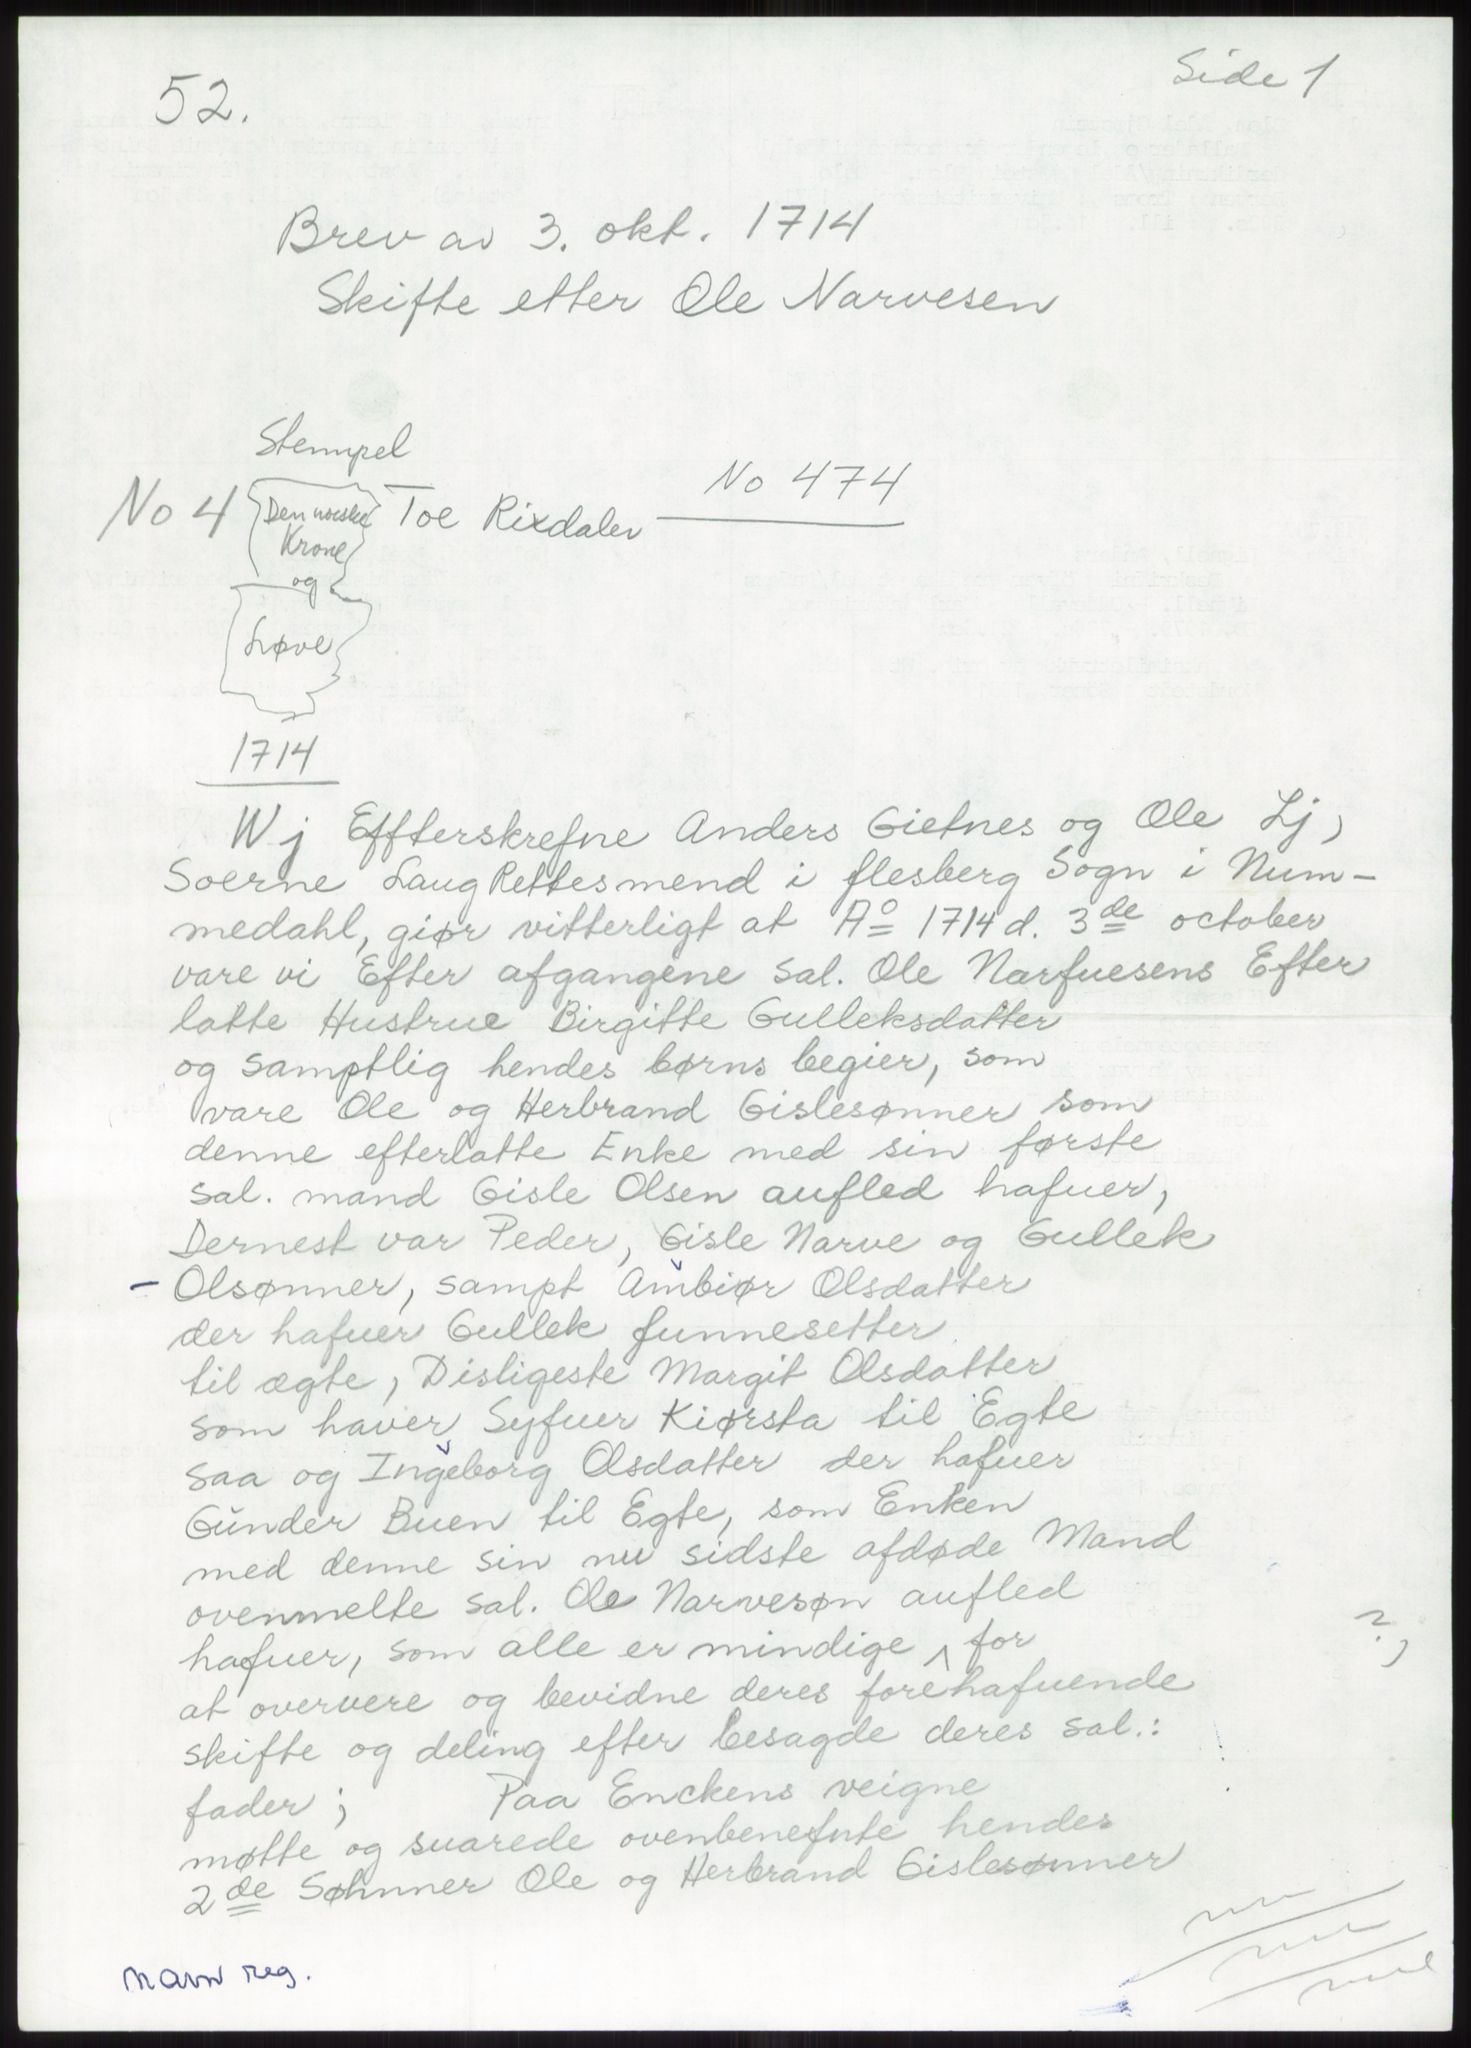 52.
Side 1
Brev av 3. okt. 1714
Skifte etter Ole Narvesen
Stempel
No 4
Den norske
Krone
og
Løve
Toe Rixdaler
No 474
1714
Wj Effterskrefne Anders Gietnes og Ole Lj,
Soerne LaugRettesmend i flesberg Sogn i Num-
medahl, giør vitterligt at Aº 1714 d. 3de october
vare vi Efter afgangene sal. Ole Narfuesens Efter
latte Hustrue Birgitte Gulleksdatter
og samptlig hendes børns begier, som
vare Ole og Herbrand Gislesønner som
denne efterlatte Enke med sin første
sal. mand Gisle Olsen aufled hafuer,
Dernest var Peder, Gisle Narve og Gullek
- Olsønner, sampt Ambiør Olsdatter
der hafuer Gullek funnesetter
til ægte, Disligeste Margit Olsdatter
som haver Syfuer Kiørsta til Egte
saa og Ingeborg Olsdatter der hafuer
Gŭnder Buen til Egte, som Enken
med denne sin nu sidste afdøde Mand
ovenmelte sal. Ole Narvesøn aufled
hafuer, som alle er mindige ^ for
at oververe og bevidne deres forehafuende
skifte og deling efter besagde deres sal.:
fader ; Paa Enckens veigne
møtte og suarede ovenbenefnte hendes
2de Søhnner Ole og Herbrand Gislesønner
navn reg.